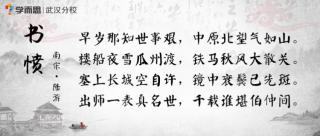 学而思 武汉分校
书愤
南宋·陆游
早岁那知世事艰，中原北望气如山。
楼船夜雪瓜州渡，铁马秋风大散关。
塞上长城空自许，镜中衰鬓已先斑。
出师一表真名世，千载谁堪伯仲间。